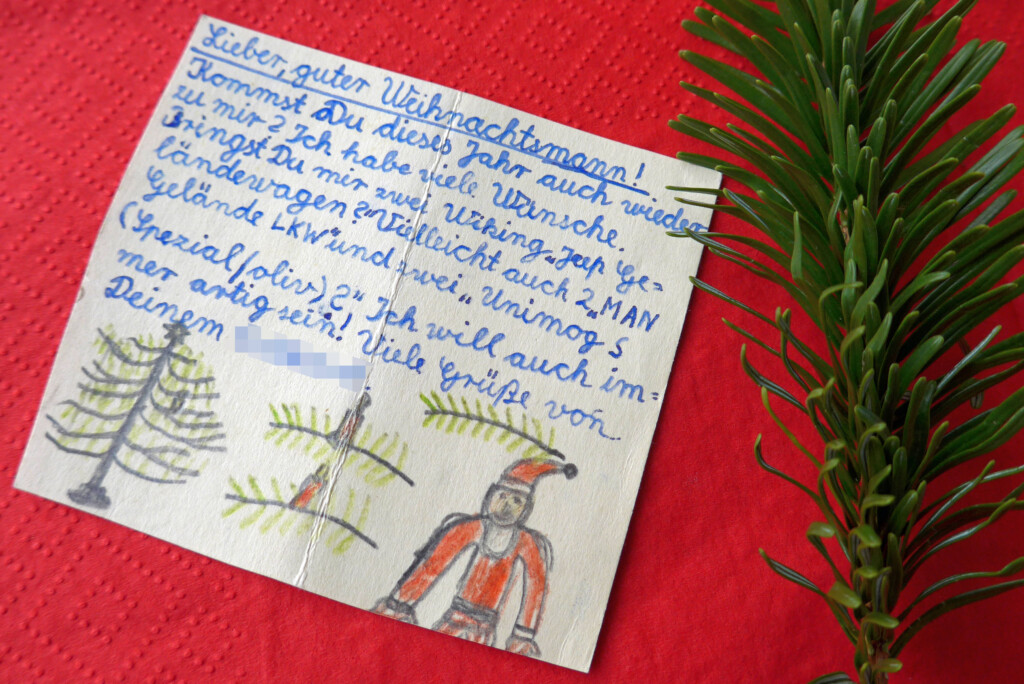 Lieber, guter Weihnachtsmann!
Kommst Du dieses Jahr auch wieder
zu mir? Ich habe viele Wünsche.
Bringst Du mir zwei Wiking „Jeep Ge=
ländewagen?" Vielleicht auch 2 „MAN
Gelände LKW" und zwei „Unimog S
(Spezial/oliv)?" Ich will auch im=
mer artig sein! Viele Grüße von
Deinem